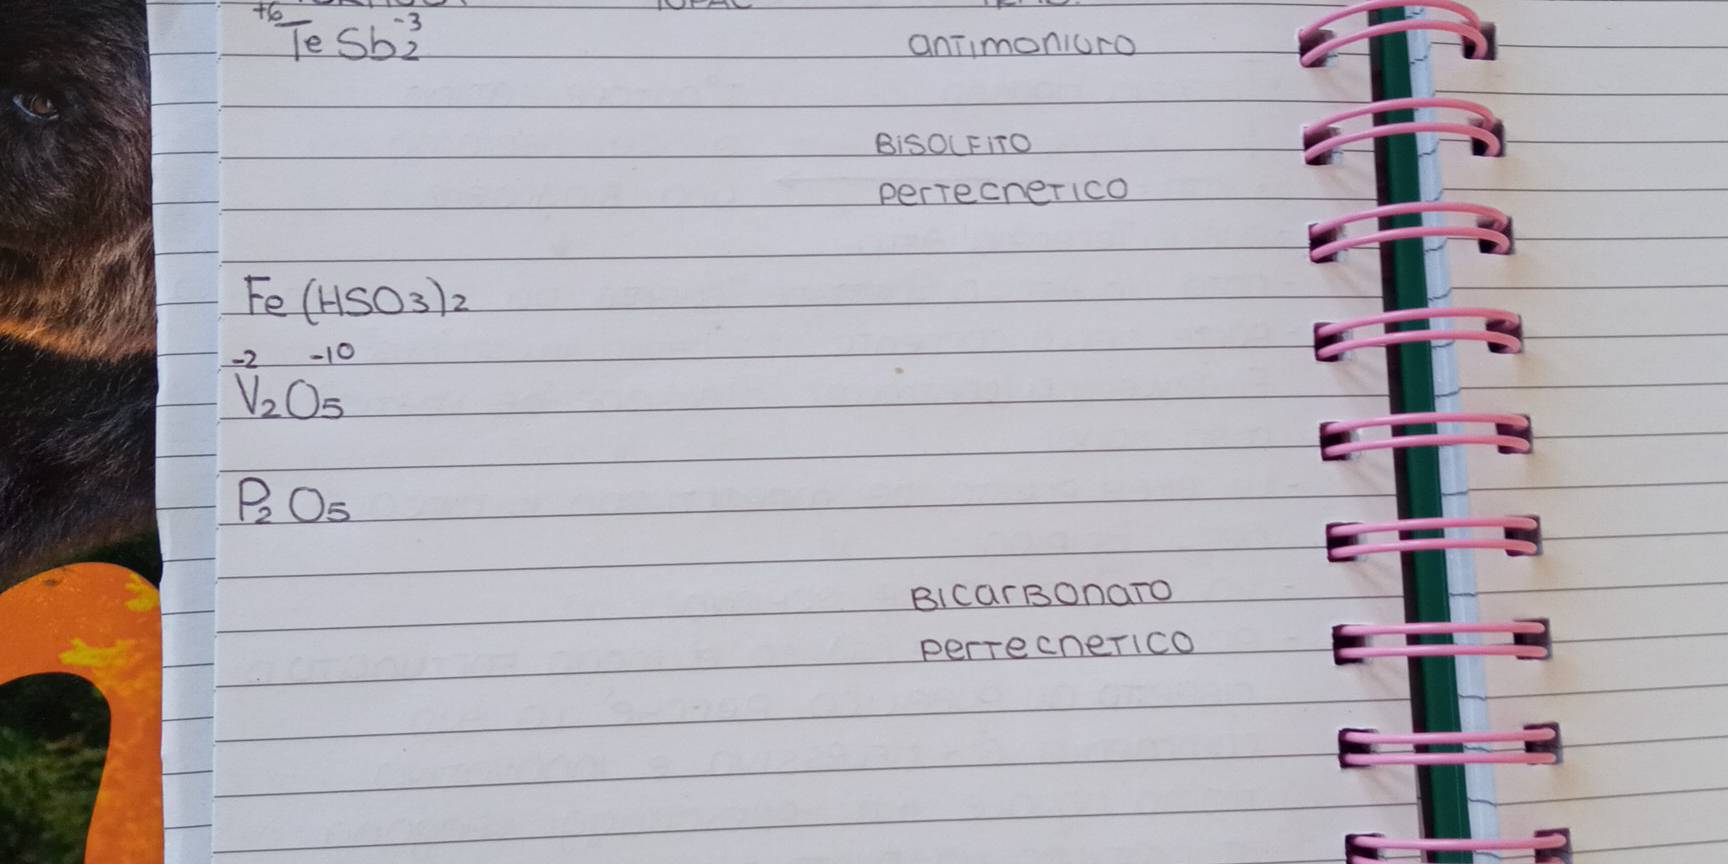 IUPAC
+6 -3
TeSb2 antimoniuro
BISOLFITO
pertecnetico
Fe(HSO3)2
-2 -10
V2O5
P2O5
BICARBONATO
pertecnetico